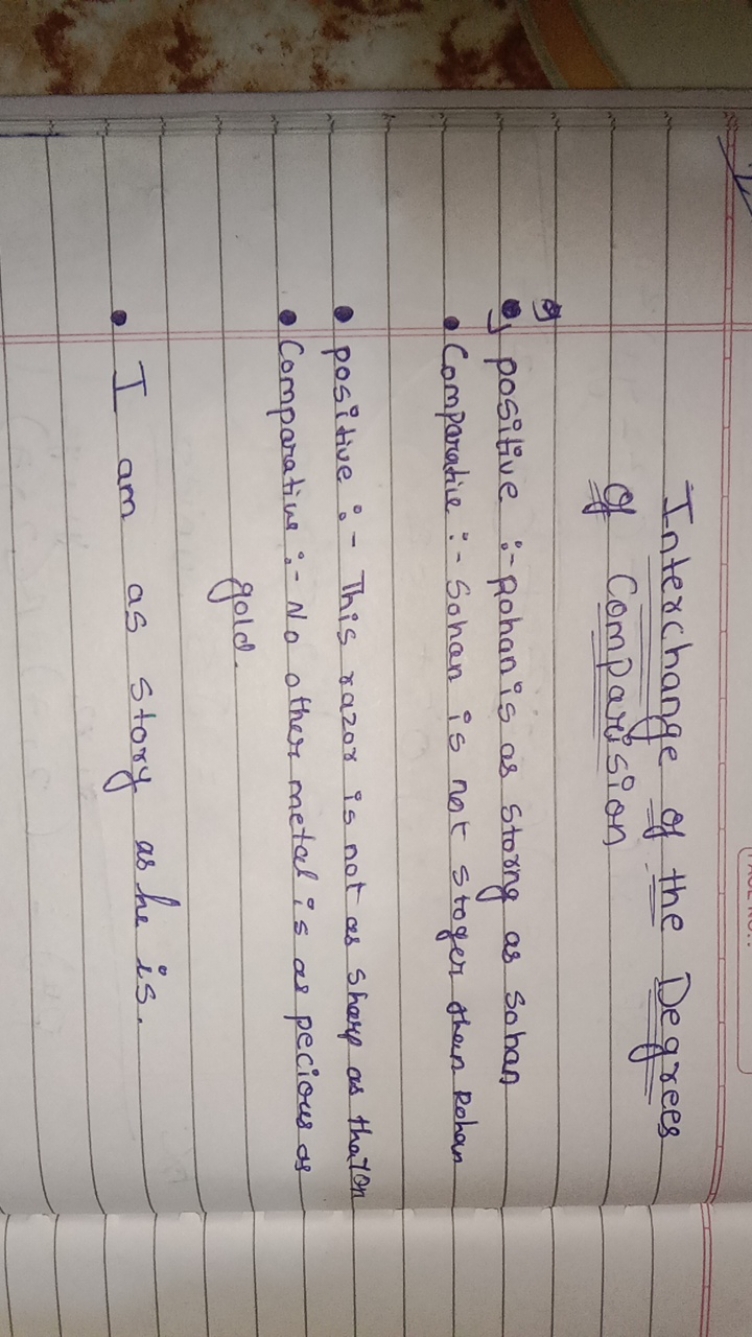 Interchange of the Degrees
of Comparision
positive :- Rohan is as Storng as Sohan
Comparative :- Sohan is not stoger than Rohan
positive :- This razor is not as sharp as that on
Comparative :- No other metal is as pecious as
gold.
I am as story as he is.